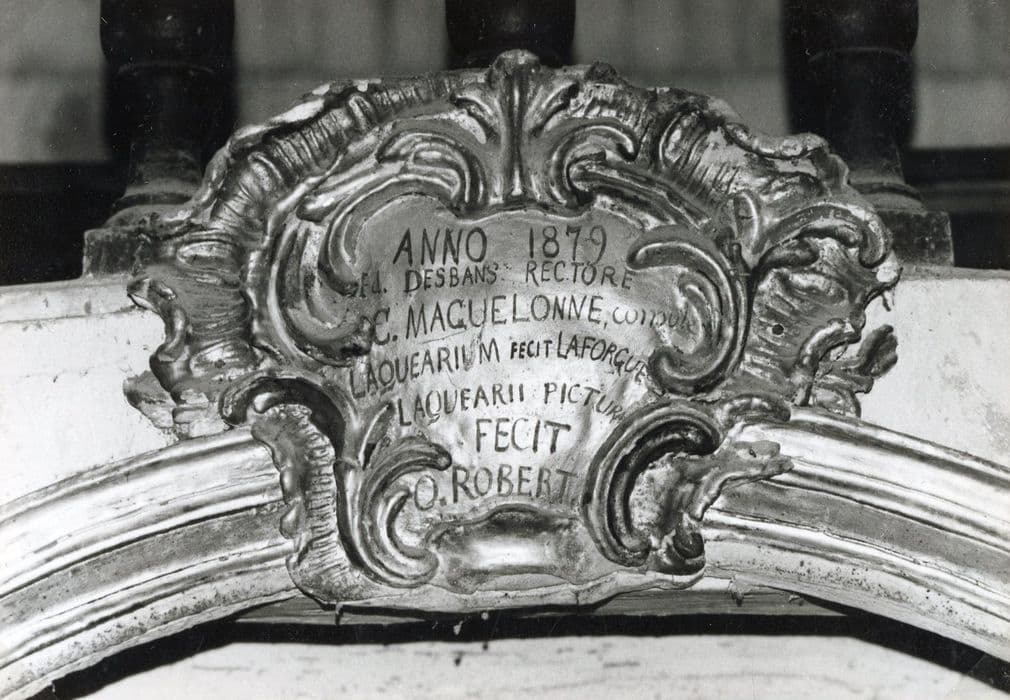 ANNO 1879
Ed. DESBANS RECTORE
C. MAGUELONNE, consule
LAQUEARIUM FECIT LAFORGUE
LAQUEARII PICTURA
FECIT
O. ROBERT